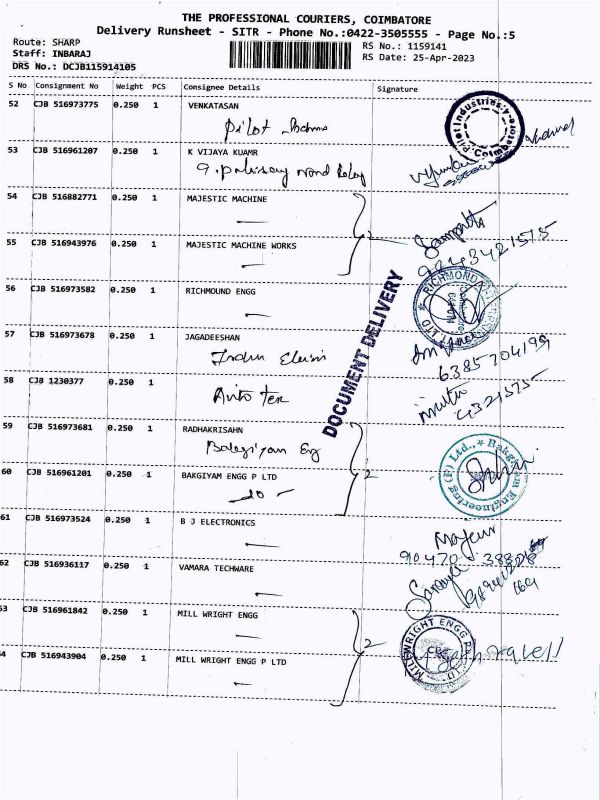 THE PROFESSIONAL COURIERS, COIMBATORE
Delivery Runsheet - SITR - Phone No.:0422-3505555 - Page No.:5
Route: SHARP
Staff: INBARAJ
DRS No.: DCJB115914105
RS No.: 1159141
RS Date: 25-Apr-2023
S No Consignment No Weight PCS Consignee Details Signature
52 CJB 516973775 0.250 1 VENKATASAN
Pilot
Pilot Industries Coimbatore
53 CJB 516961207 0.250 1 K VIJAYA KUAMR
54 CJB 516882771 0.250 1 MAJESTIC MACHINE
2
55 CJB 516943976 0.250 1 MAJESTIC MACHINE WORKS
9243421575
56 CJB 516973582 0.250 1 RICHMOUND ENGG
RICHMOND
DOCUMENT DELIVERY
57 CJB 516973678 0.250 1 JAGADEESHAN
6385704199
58 CJB 1230377 0.250 1
Auto Tex
4321575
59 CJB 516973681 0.250 1 RADHAKRISAHN
Bakgiyam Engineering (P) Ltd.,
60 CJB 516961201 0.250 1 BAKGIYAM ENGG P LTD
2
61 CJB 516973524 0.250 1 B J ELECTRONICS
62 CJB 516936117 0.250 1 VAMARA TECHWARE
63 CJB 516961842 0.250 1 MILL WRIGHT ENGG
2
64 CJB 516943904 0.250 1 MILL WRIGHT ENGG P LTD